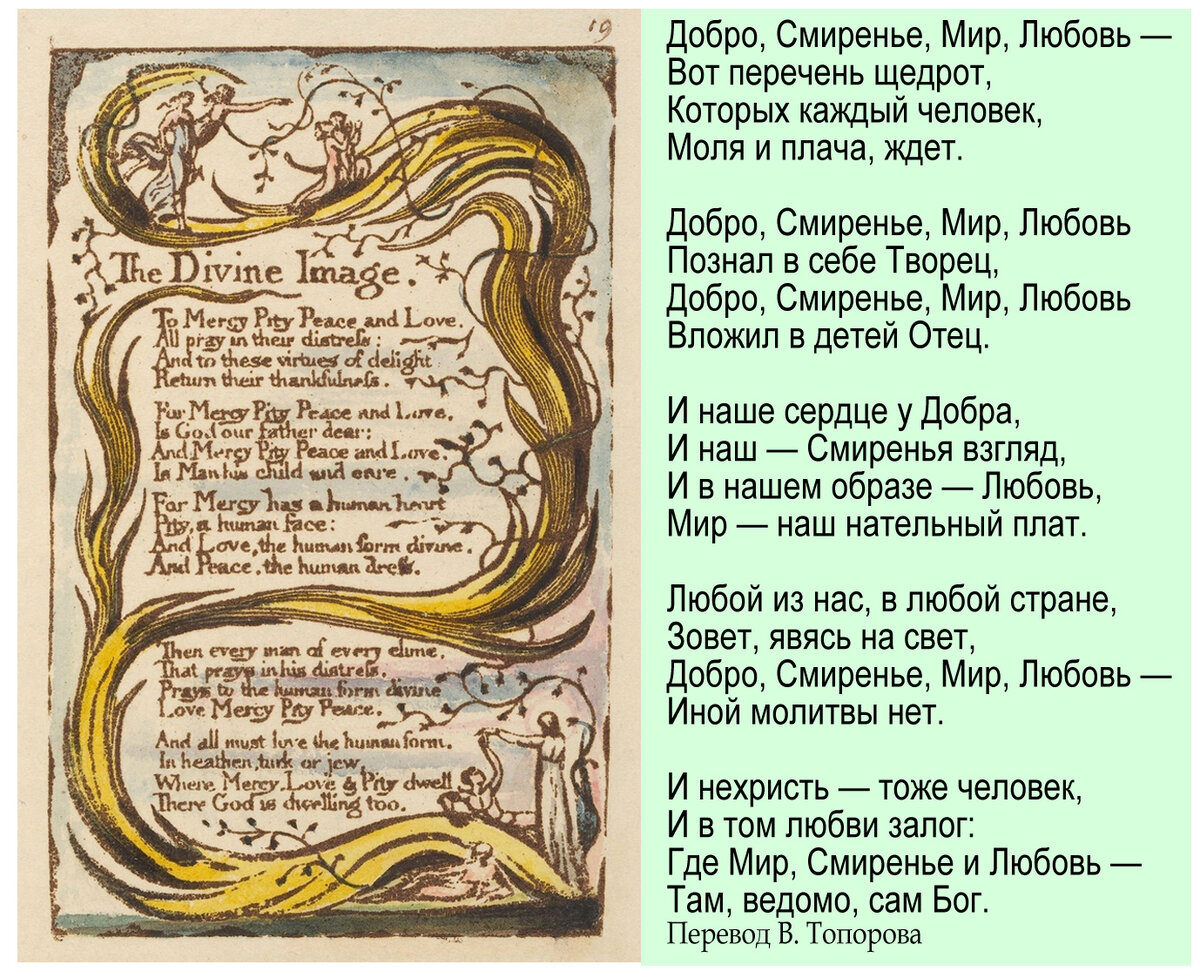 19
The Divine Image.
To Mercy Pity Peace and Love.
All pray in their distress:
And to these virtues of delight
Return their thankfulness.
For Mercy Pity Peace and Love,
Is God our father dear:
And Mercy Pity Peace and Love,
Is Man his child and care.
For Mercy has a human heart
Pity, a human face:
And Love, the human form divine,
And Peace, the human dress.
Then every man of every clime,
That prays in his distress,
Prays to the human form divine
Love Mercy Pity Peace.
And all must love the human form,
In heathen, turk or jew,
Where Mercy, Love & Pity dwell
There God is dwelling too.
Добро, Смиренье, Мир, Любовь —
Вот перечень щедрот,
Которых каждый человек,
Моля и плача, ждет.
Добро, Смиренье, Мир, Любовь
Познал в себе Творец,
Добро, Смиренье, Мир, Любовь
Вложил в детей Отец.
И наше сердце у Добра,
И наш — Смиренья взгляд,
И в нашем образе — Любовь,
Мир — наш нательный плат.
Любой из нас, в любой стране,
Зовет, явясь на свет,
Добро, Смиренье, Мир, Любовь —
Иной молитвы нет.
И нехристь — тоже человек,
И в том любви залог:
Где Мир, Смиренье и Любовь —
Там, ведомо, сам Бог.
Перевод В. Топорова